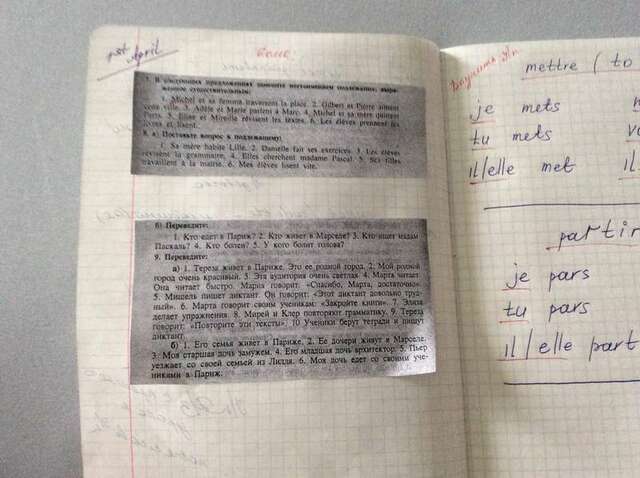 1st April
7. В следующих предложениях замените местоимением подлежащие, выра-
женное существительным:
1. Michel et sa femme traversent la place. 2. Gilbert et Pierre aiment
cette ville. 3. Adèle et Marie parlent à Marc. 4. Michel et sa mère quittent
Paris. 5. Elise et Mireille révisent les textes. 6. Les élèves prennent les
livres et lisent.
8. а) Поставьте вопрос к подлежащему:
1. Sa mère habite Lille. 2. Danielle fait ses exercices. 3. Les élèves
révisent la grammaire. 4. Elles cherchent madame Pascal. 5. Ses filles
travaillent à la mairie. 6. Mes élèves lisent vite.
б) Переведите:
1. Кто едет в Париж? 2. Кто живет в Марселе? 3. Кто ищет мадам
Паскаль? 4. Кто болен? 5. У кого болит голова?
9. Переведите:
а) 1. Тереза живет в Париже. Это ее родной город. 2. Мой родной
город очень красивый. 3. Эта аудитория очень светлая. 4. Марта читает.
Она читает быстро. Мария говорит: «Спасибо, Марта, достаточно».
5. Мишель пишет диктант. Он говорит: «Этот диктант довольно труд-
ный». 6. Марта говорит своим ученикам: «Закройте книги». 7. Элиза
делает упражнения. 8. Мирей и Клер повторяют грамматику. 9. Тереза
говорит: «Повторите эти тексты». 10. Ученики берут тетради и пишут
диктант.
б) 1. Его семья живет в Париже. 2. Ее дочери живут в Марселе.
3. Моя старшая дочь замужем. 4. Его младшая дочь архитектор. 5. Пьер
уезжает со своей семьей из Лилля. 6. Моя дочь едет со своими уче-
никами в Париж.
mettre (to
je mets
tu mets
il/elle met il
partir
je pars
tu pars
il/elle part